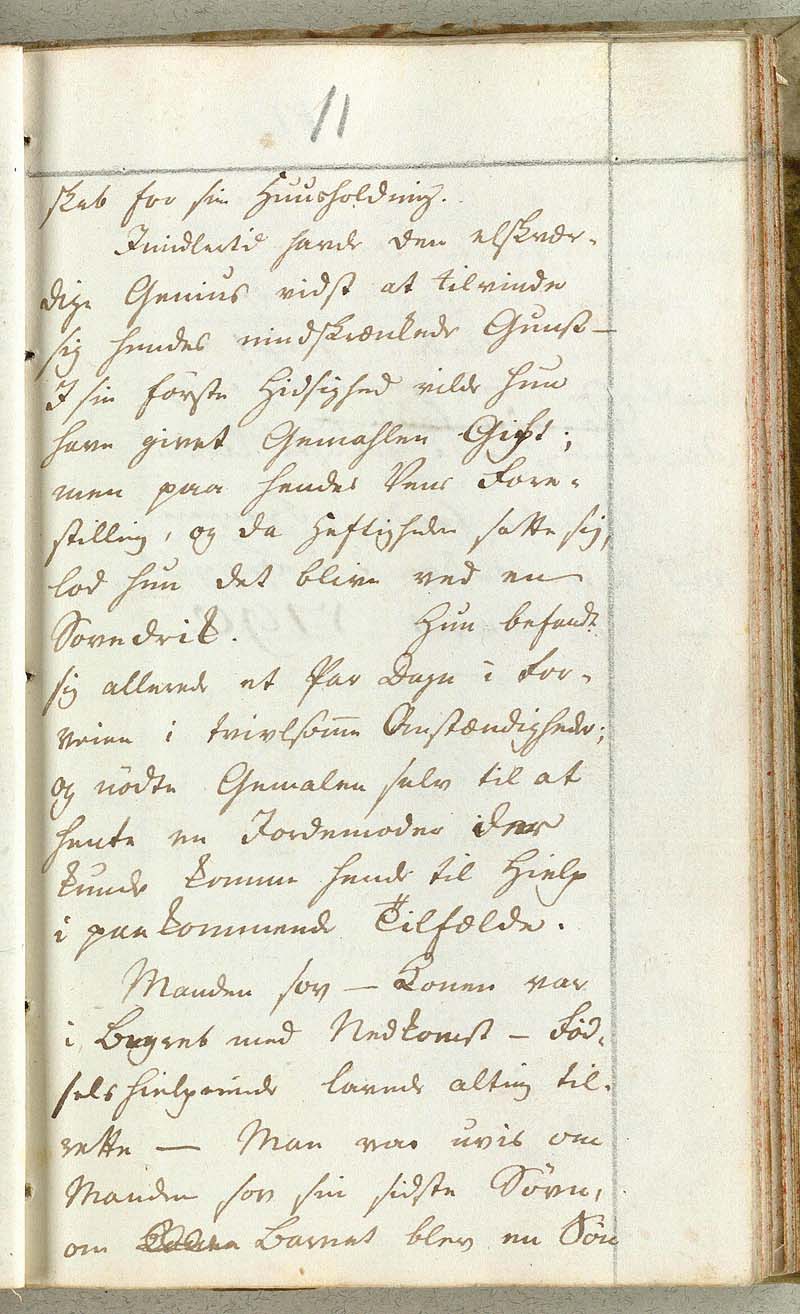 11
skab for sin Huusholdning.
Imidlertid havde den elskvær-
dige Genius vidst at tilvinde
sig hendes uindskrænkede Gunst —
I sin förste Hidsighed vilde hun
have givet Gemahlen Gift;
men paa hendes Vens Fore-
stilling, og da Heftigheden satte sig,
lod hun det blive ved en
Sovedrik. Hun befandt
sig allerede et Par Dage i For-
veien i tvivlsomme Omstændigheder;
og nödte Gemalen selv til at
hente en Jordemoder der
kunde komme hende til Hielp
i paakommende Tilfælde.
Manden sov — Konen var
i Begreb med Nedkomst — Föd-
selshielperinde lavede alting til-
rette — Man var uvis om
Manden sov sin sidste Sövn,
om Barnet blev en Sön